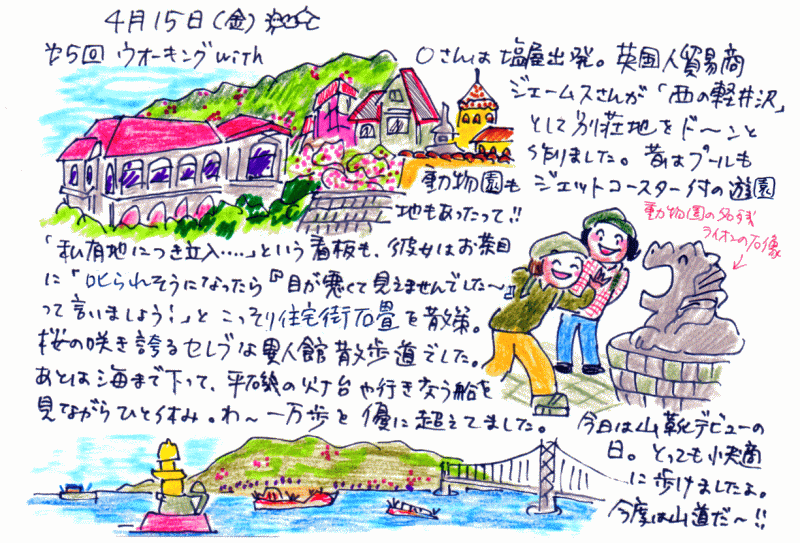 4月15日(金)
第5回 ウオーキングwith
Oさんは塩屋出発。英国人貿易商
ジェームスさんが「西の軽井沢」
として別荘地をド〜ンと
作りました。昔はプールも
動物園も ジェットコースター付の遊園
地もあったって!!
動物園の名残
ライオンの石像
「私有地につき立入‥‥」という看板も、彼女はお茶目
に「叱られそうになったら『目が悪くて見えませんでした〜』
って言いましょう!」と こっそり住宅街石畳を散策。
桜の咲き誇るセレブな異人館散歩道でした。
あとは海まで下って、平磯の灯台や行き交う船を
見ながらひと休み。わ〜一万歩を優に超えてました。
今日は山靴デビューの
日。とっても快適
に歩けましたよ。
今度は山道だ〜!!